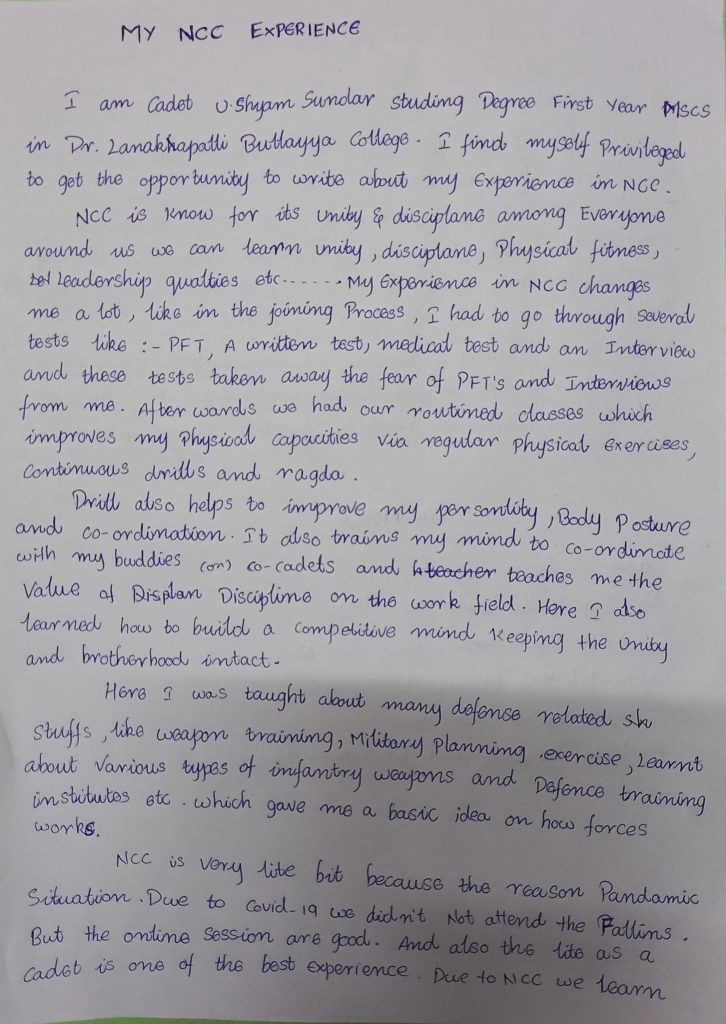 MY NCC EXPERIENCE
I am Cadet U.Shyam Sundar studing Degree First Year MSCS
in Dr. Lanakhapatli Bullayya College. I find myself Privileged
to get the opportunity to write about my Experience in NCC.
NCC is Know for its unity & disciplane among Everyone
around us we can learn unity, disciplane, Physical fitness,
Leadership qualties etc....... My Experience in NCC changes
me a lot, like in the joining Process, I had to go through several
tests like :- PFT, A written test, medical test and an Interview
and these tests taken away the fear of PFT's and Interviews
from me. After wards we had our routined classes which
improves my Physical Capacities via regular Physical Exercises,
Continuous drills and ragda.
Drill also helps to improve my personlity, Body Posture
and co-ordination. It also trains my mind to co-ordinate
with my buddies (or) co-cadets and teacher teaches me the
Value of Displan Discipline on the work field. Here I also
learned how to build a competitive mind Keeping the Unity
and brotherhood intact.
Here I was taught about many defense related sk
stuffs, like weapon training, Military Planning exercise, Learnt
about Various types of infantry weapons and Defence training
institutes etc. which gave me a basic idea on how forces
works.
NCC is very lite bit because the reason Pandamic
Situation. Due to Covid-19 we didn't Not attend the Fallins.
But the online Session are good. And also the lite as a
Cadet is one of the best Experience. Due to NCC we learn